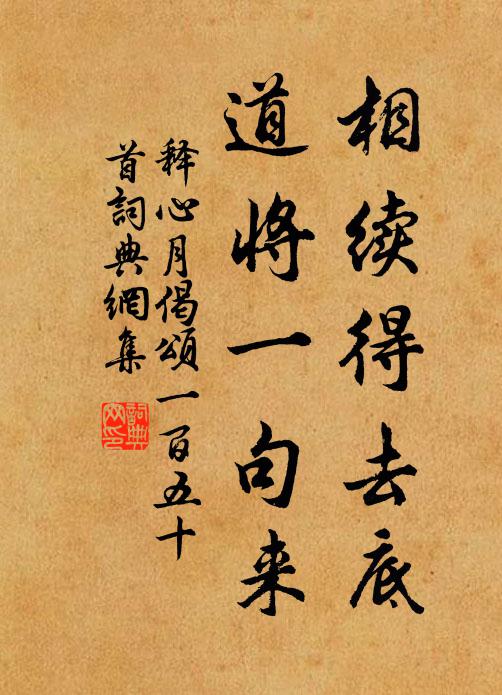 相续得去底
道将一句来
释心月偈頌一百五十
首詞典網集
詞典
网印